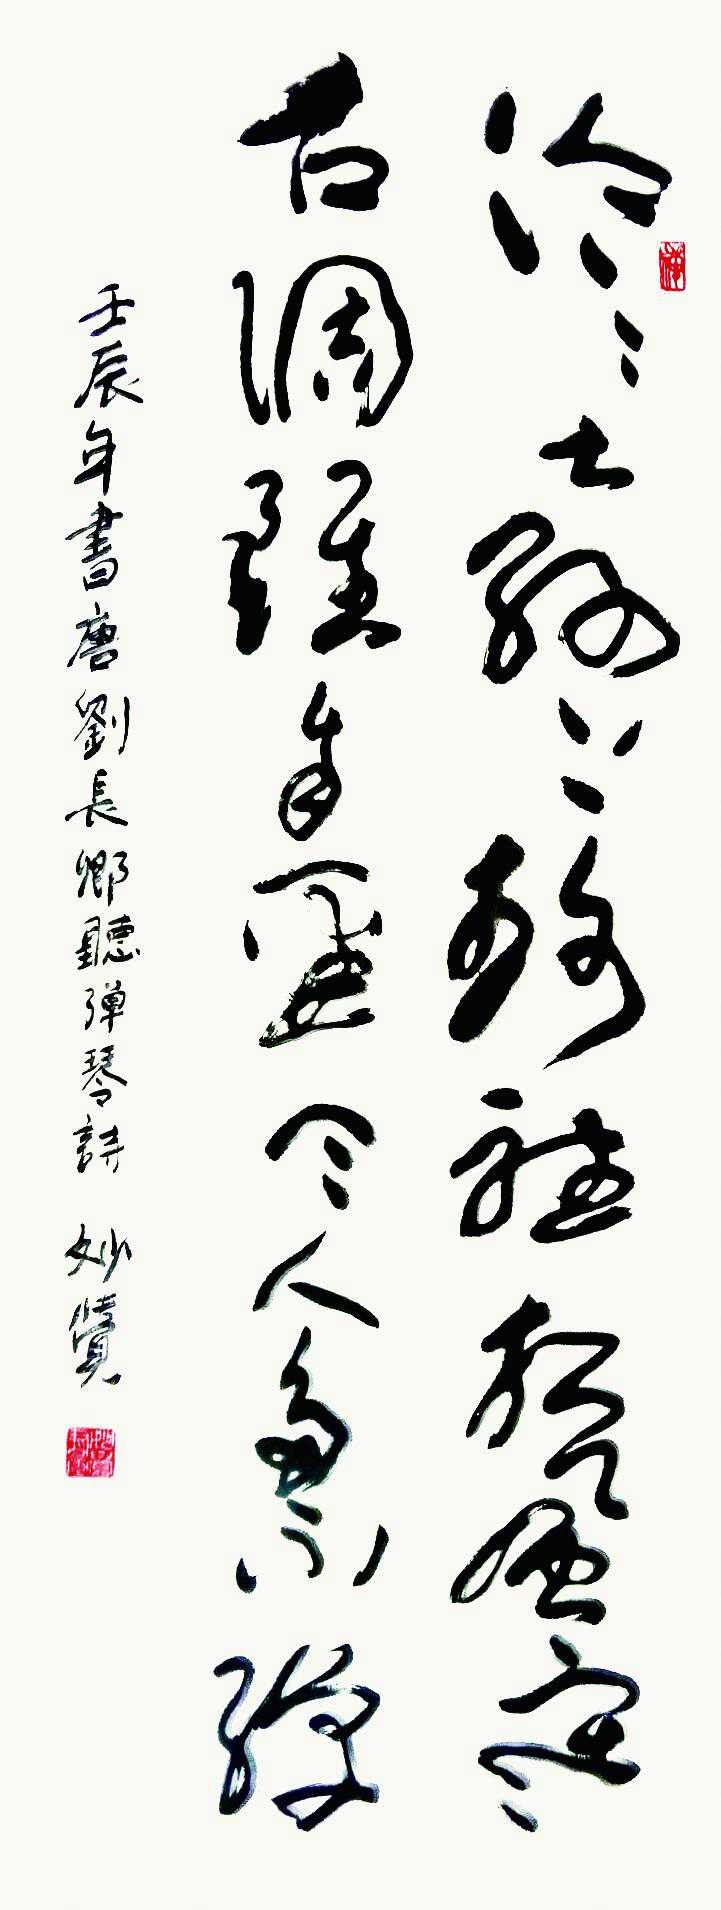 泠〻七弦上静聽松風寒
古調雖自愛今人多不彈
壬辰年書唐劉長卿聽弹琴詩 妙